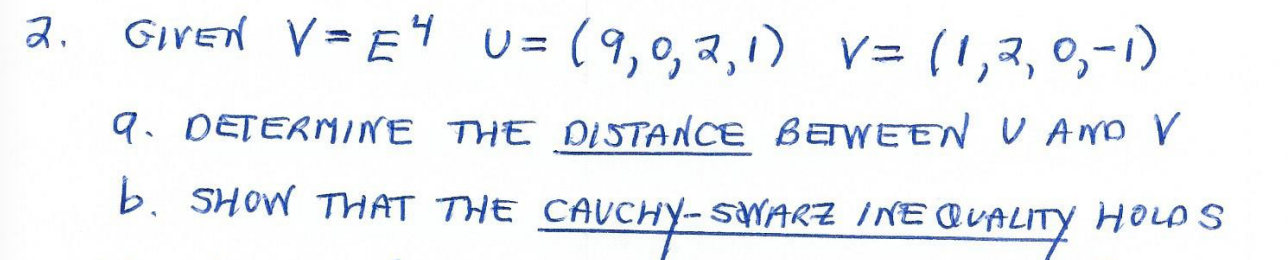 2. GIVEN V = E⁴ U = (9, 0, 2, 1) V = (1, 2, 0, -1)
a. DETERMINE THE DISTANCE BETWEEN U AND V
b. SHOW THAT THE CAUCHY-SWARZ INEQUALITY HOLDS